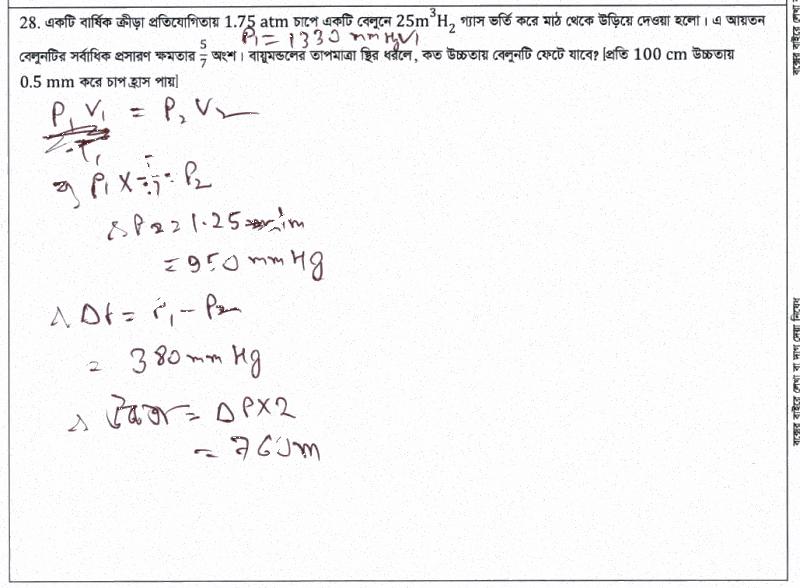 28. একটি বার্ষিক ক্রীড়া প্রতিযোগিতায় 1.75 atm চাপে একটি বেলুনে 25m³H₂ গ্যাস ভর্তি করে মাঠ থেকে উড়িয়ে দেওয়া হলো। এ আয়তন
P₁ = 1330 mmHg V₁
বেলুনটির সর্বাধিক প্রসারণ ক্ষমতার 5/7 অংশ। বায়ুমন্ডলের তাপমাত্রা স্থির ধরলে, কত উচ্চতায় বেলুনটি ফেটে যাবে? [প্রতি 100 cm উচ্চতায়
0.5 mm করে চাপ হ্রাস পায়]
P₁V₁ = P₂V₂
P₁ × 5/7 = P₂
P₂ = 1.25 atm
= 950 mmHg
= P₁ - P₂
= 380 mmHg
উচ্চতা = ΔP×2
= 760m